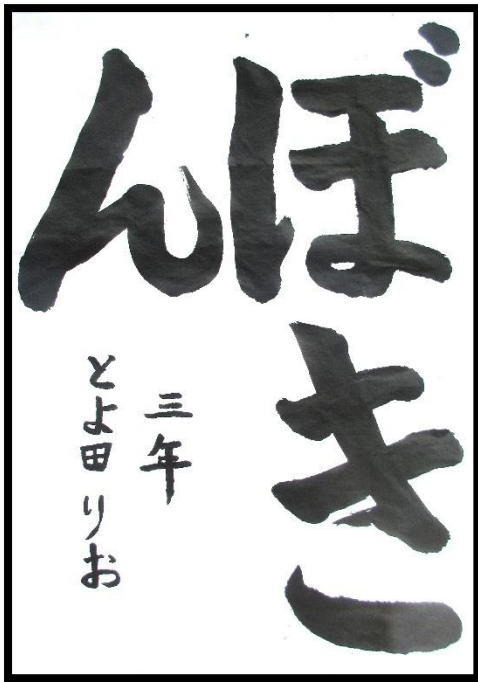 ぼき
ん
三年
とよ田りお